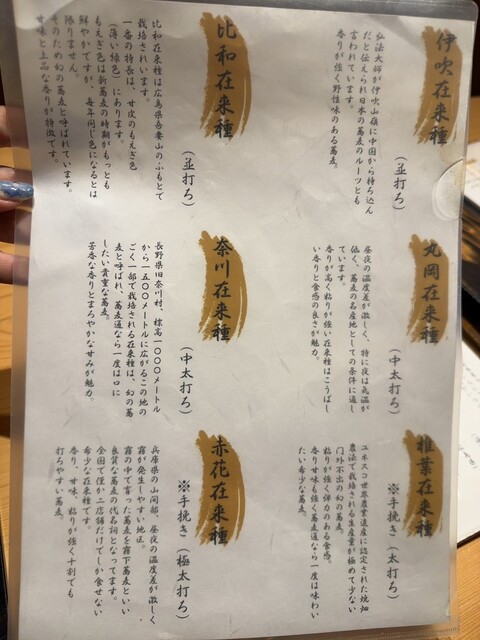 伊吹在来種
(並打ち)
弘法大師が伊吹山嶺に中国から持ち込ん
だと伝えられ日本の蕎麦のルーツとも
言われています。
香りが強く野性味のある蕎麦。
比和在来種
(並打ち)
比和在来種は広島県吾妻山のふもとで
栽培されています。
一番の特長は、甘皮のもえぎ色
(薄い緑色)にあります。
もえぎ色は新蕎麦の時期がもっとも
鮮やかですが、毎年同じ色になるとは
限りません。
そのため幻の蕎麦と呼ばれています。
甘味と上品な香りが特徴です。
丸岡在来種
(中太打ち)
昼夜の温度差が激しく、特に夜は気温が
低く、蕎麦の名産地としての条件に適し
ています。
香りが高く粘りが強い在来種はこうばし
い香りと食感の良さが魅力。
奈川在来種
(中太打ち)
長野県旧奈川村、標高一〇〇〇メートル
から一五〇〇メートルに広がるこの地の
ごく一部で栽培される在来種は、幻の蕎
麦と呼ばれ、蕎麦通なら一度は口に
したい貴重な蕎麦。
芳香な香りとまろやかな甘みが魅力。
椎葉在来種
※手挽き(太打ち)
ユネスコ世界農業遺産に認定された焼畑
農法で栽培される生産量が極めて少ない
門外不出の幻の蕎麦。
粘りが強く弾力のある食感。
香り甘味も強く蕎麦通なら一度は味わい
たい希少な蕎麦。
赤花在来種
※手挽き(極太打ち)
兵庫県の山間部、昼夜の温度差が激しく
霧が発生しやすい地区。
霧の中で育った蕎麦を霧下蕎麦といい
良質な蕎麦の代名詞となってます。
全国で僅か二店舗だけでしか食せない
希少な在来種です。
香り、甘味、粘りが強く十割でも
打ちやすい蕎麦。